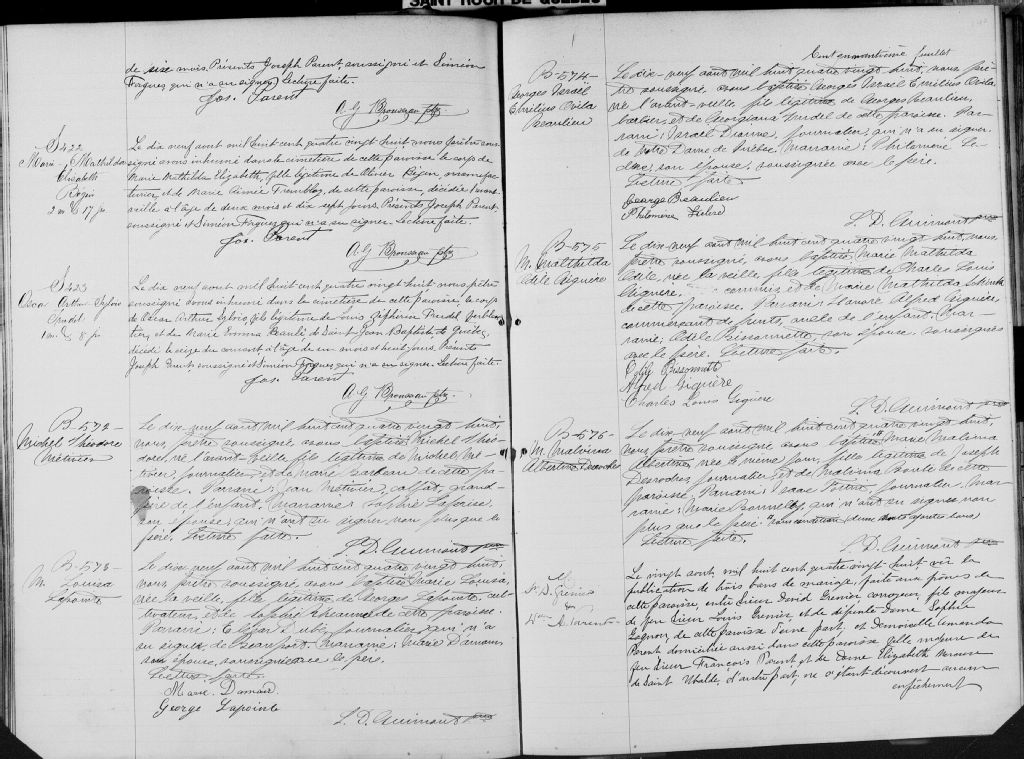 SAINT ROCH DE QUEBEC
de six mois. Présents Joseph Parent, soussigné et Siméon
Forgues qui n'a su signer. Lecture faite.
Jos. Parent
A. G. Brousseau ptre
S 422
Marie Mathilda
Elisabeth
Bégin
2 m & 17 jrs
Le dix neuf août mil huit cent quatre vingt huit nous prêtre sous-
signé avons inhumé dans le cimetière de cette paroisse le corps de
Marie Mathilda Elizabeth, fille légitime de Olivier Bégin, manufac-
turier, et de Marie Aimée Tremblay, de cette paroisse, décédée l'avant-
veille à l'âge de deux mois et dix sept jours. Présents Joseph Parent
soussigné et Siméon Forgues qui n'a su signer. Lecture faite.
Jos. Parent
A. G. Brousseau ptre
S 423
Oscar Arthur Sylvio
1 m. & 8 jrs
Le dix neuf août mil huit cent quatre vingt huit nous prêtre
soussigné avons inhumé dans le cimetière de cette paroisse, le corps
de Oscar Arthur Sylvio, fils légitime de Zéphirin ferblan-
tier, et de Marie Emma de Saint Jean Baptiste de Québec,
décédé le seize du courant à l'âge de un mois et huit jours. Présents
Joseph Parent, soussigné et Siméon Forgues qui n'a su signer. Lecture faite.
Jos. Parent
A. G. Brousseau ptre
B-572
Michel Théodore
Métivier
Le dix neuf août mil huit cent quatre vingt huit,
nous, prêtre soussigné, avons baptisé Michel Théo-
dore, né l'avant-veille, fils légitime de Michel Mé-
tivier, journalier, et de Marie de cette pa-
roisse. Parrain: Jean Métivier, calfat, grand-
père de l'enfant. Marraine: Sophie
son épouse, qui n'ont su signer non plus que le
père. Lecture faite.
L. D. Guimont ptre
B-573
M. Louisa
Lapointe
Le dix neuf août mil huit cent quatre vingt huit,
nous, prêtre soussigné, avons baptisé Marie Louisa,
née la veille, fille légitime de George Lapointe, cul-
tivateur, et de Sophie Rhéaume de cette paroisse.
Parrain: Elzéar Dubé, journalier, qui n'a
su signer, de Beauport. Marraine: Marie Damour,
son épouse, soussignée avec le père.
Lecture faite.
Marie Damour
George Lapointe
L. D. Guimont ptre
B-574
Georges Israël
Emilius Ovila
Beaulieu
juillet
Le dix-neuf août mil huit quatre vingt huit, nous prê-
tre soussigné, avons baptisé Georges Israël Emilius Ovila,
né l'avant-veille, fils légitime de Georges Beaulieu,
barbier, et de Georgiana de cette paroisse. Par-
rain: Israël Dionne, journalier, qui n'a su signer,
de Notre Dame de Québec. Marraine: Philomène Le-
clerc, son épouse, soussignée avec le père.
Lecture faite
George Beaulieu
Philomène
L. D. Guimont ptre
B-575
M. Mathilda
Adèle Giguère
Le dix-neuf août mil huit cent quatre vingt huit, nous,
prêtre soussigné, avons baptisé Marie Mathilda
Adèle, née la veille, fille légitime de Charles Louis
Giguère, commis, et de Marie Mathilda
de cette paroisse. Parrain: Honoré Alfred Giguère,
commerçant de fruits, oncle de l'enfant. Mar-
raine: Adèle Bissonnette, son épouse, soussignés
avec le père. Lecture faite.
Adèle Bissonnette
Alfred Giguère
Charles Louis Giguère
L. D. Guimont ptre
B-576
M. Malvina
Albertine Desroches
Le dix-neuf août mil huit cent quatre vingt huit,
nous, prêtre soussigné, avons baptisé Marie Malvina
Albertine, née le même jour, fille légitime de Joseph
Desroches, journalier, et de Malvina de cette
paroisse. Parrain: Isaac journalier. Mar-
raine: Marie qui n'ont su signer non
plus que le père. sous condition (deux mots ajoutés bons)
Lecture faite.
L. D. Guimont ptre
M
D. Grenier
&
A. Parent
Le vingt août, mil huit cent quatre vingt huit vu la
publication de trois bans de mariage, faite aux prônes de
cette paroisse, entre Sieur David Grenier corroyeur, fils majeur
de feu Sieur Louis Grenier, et de défunte Dame Sophie
Gagnon, de cette paroisse d'une part; et Demoiselle Amanda
Parent domiciliée aussi dans cette paroisse, fille majeure de
feu Sieur François Parent, et de Dame Elizabeth
de Saint Ubalde, d'autre part; ne s'étant découvert aucun
empêchement